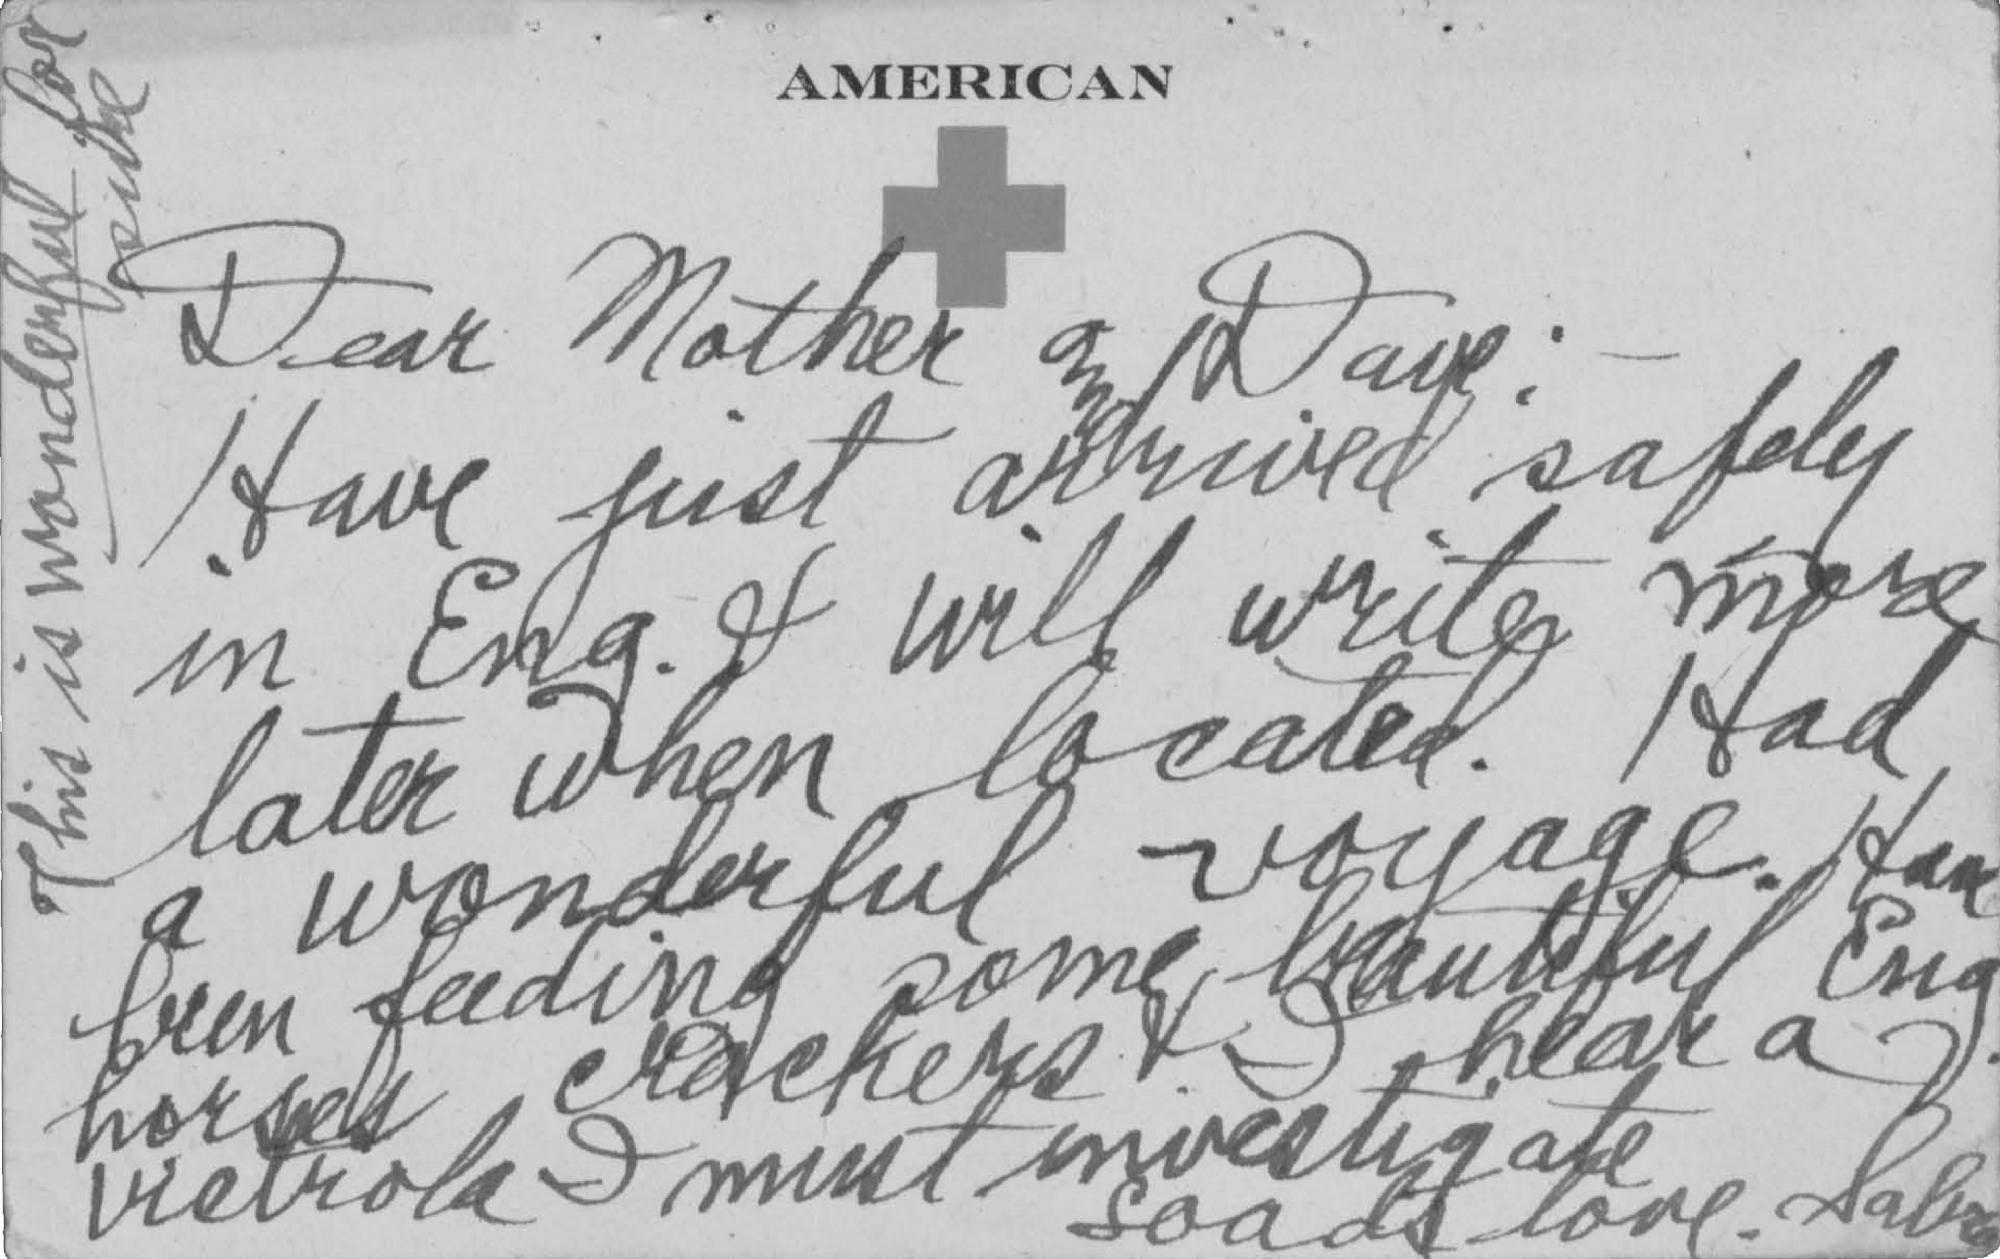 AMERICAN
Dear Mother and Dave: —
Have just arrived safely
in Eng. & will write more
later when located. Had
a wonderful voyage. Have
been feeding some beautiful Eng.
horses crackers & I hear a
victrola I must investigate
Loads love.
This is wonderful for